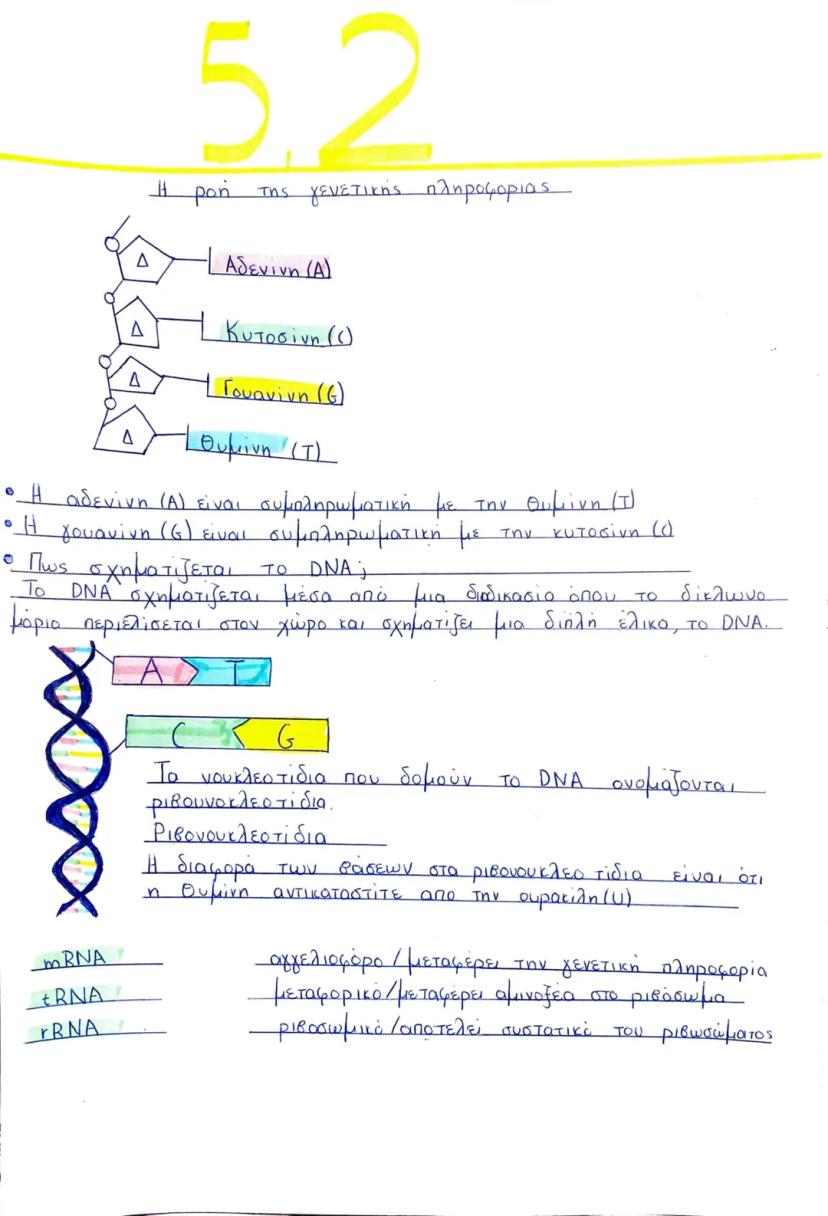 5.2
Η ροή της γενετικής πληροφορίας
Δ Αδενίνη (Α)
Δ Κυτοσίνη (C)
Δ Γουανίνη (G)
Δ Θυμίνη (T)
• Η αδενίνη (Α) είναι συμπληρωματική με την Θυμίνη (Τ)
• Η γουανίνη (G) είναι συμπληρωματική με την κυτοσίνη (C)
• Πως σχηματίζεται το DNA;
Το DNA σχηματίζεται μέσα από μια διαδικασία όπου το δίκλωνο
μόριο περιελίσεται στον χώρο και σχηματίζει μια διπλή έλικα, το DNA.
A T
C G
Τα νουκλεοτίδια που δομούν το DNA ονομάζονται
ριβουνοκλεοτίδια.
Ριβονουκλεοτίδια
Η διαφορά των βάσεων στα ριβονουκλεοτίδια είναι ότι
η Θυμίνη αντικαταστίτε απο την ουρακίλη (U)
mRNA αγγελιοφόρο/μεταφέρει την γενετική πληροφορία
tRNA μεταφορικό/μεταφέρει αμινοξέα στο ριβόσωμα
rRNA ριβοσωμικό/αποτελεί συστατικό του ριβωσώματος